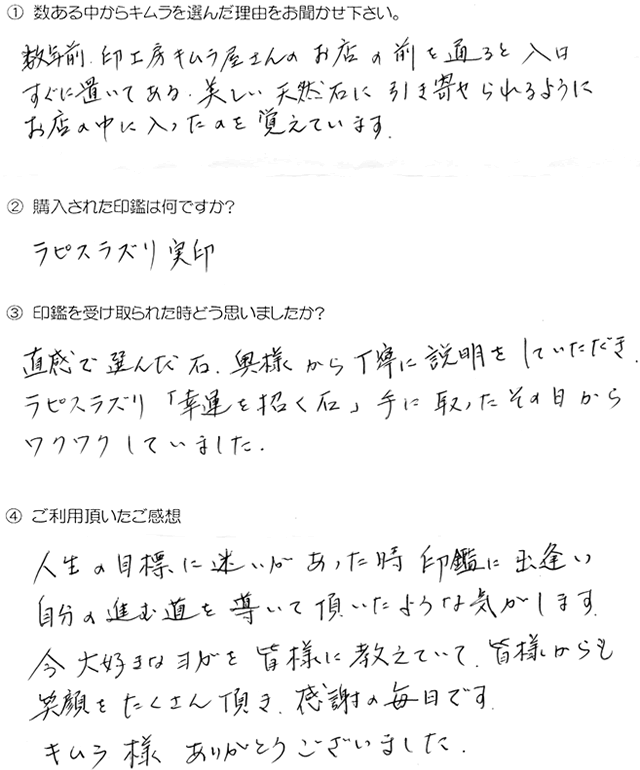 ① 数ある中からキムラを選んだ理由をお聞かせ下さい。
数年前、印工房キムラ屋さんのお店の前を通ると入口
すぐに置いてある、美しい天然石に引き寄せられるように
お店の中に入ったのを覚えています。
② 購入された印鑑は何ですか?
ラピスラズリ実印
③ 印鑑を受け取られた時どう思いましたか?
直感で選んだ石、奥様から丁寧に説明をしていただき、
ラピスラズリ「幸運を招く石」手に取ったその日から
ワクワクしていました。
④ ご利用頂いたご感想
人生の目標に迷いがあった時印鑑に出逢い
自分の進む道を導いて頂いたような気がします。
今大好きなヨガを皆様に教えていて、皆様からも
笑顔をたくさん頂き、感謝の毎日です。
キムラ様 ありがとうございました。